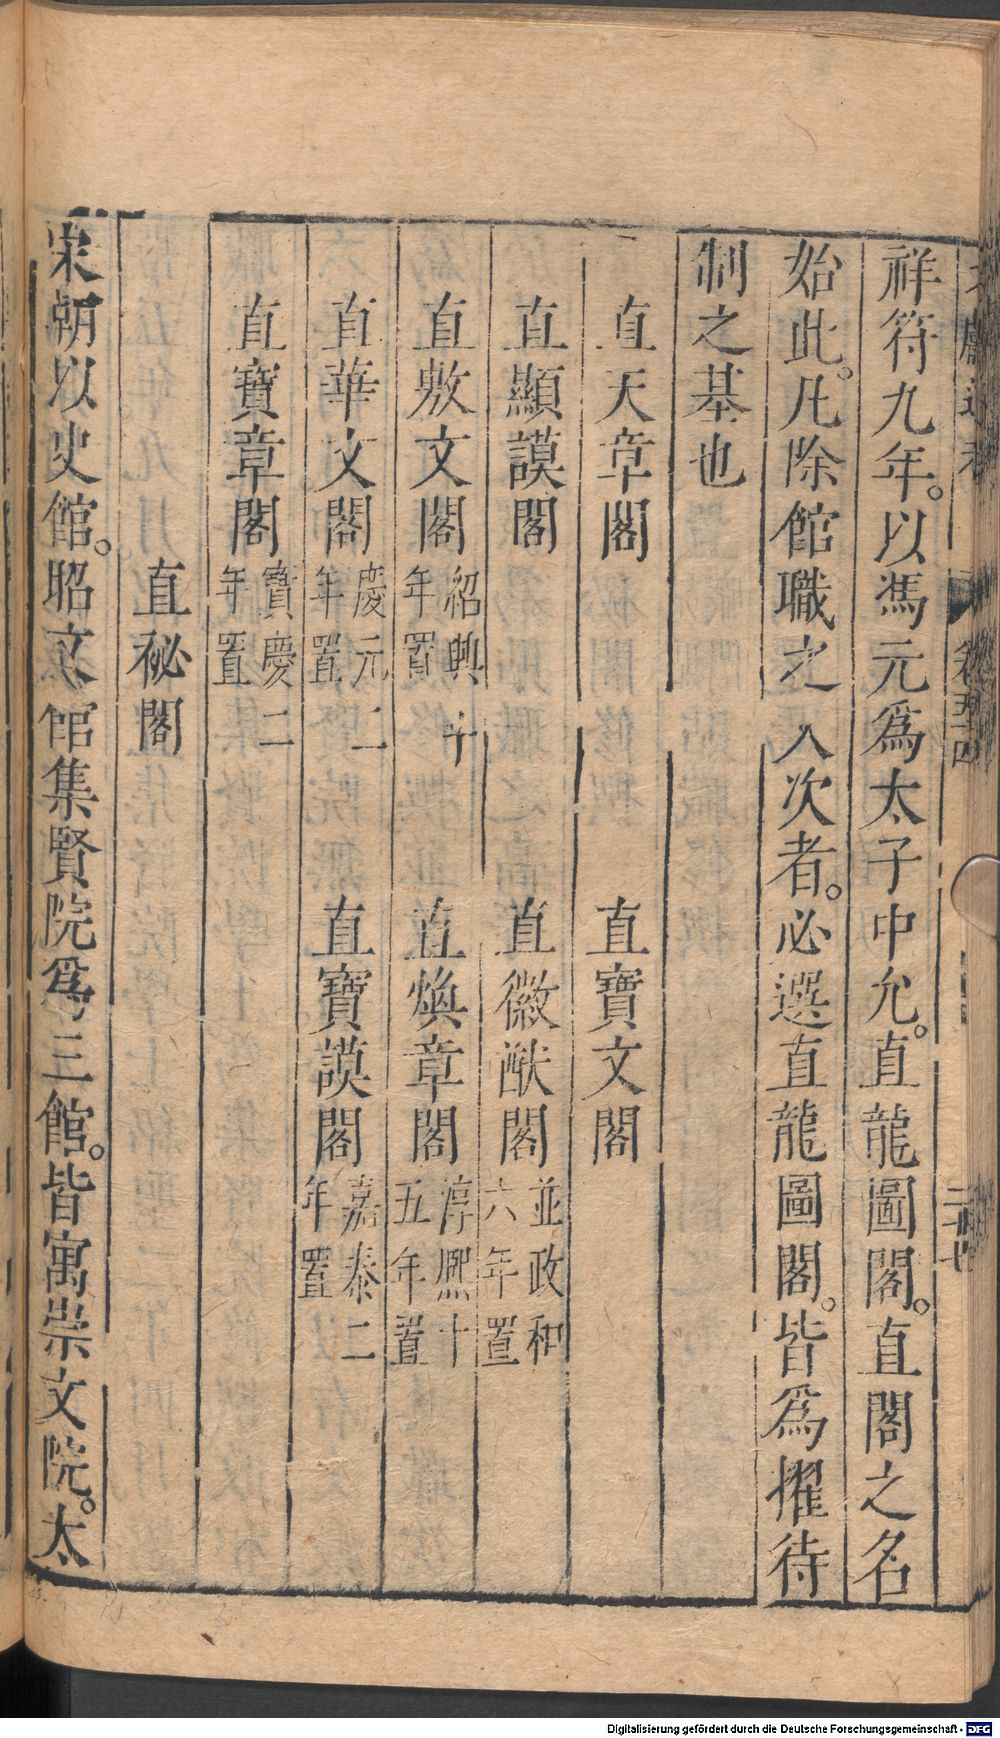 祥符九年。以馮元爲太子中允。直龍圖閣。直閣之名
始此。凡除館職之入次者。必選直龍圖閣。皆爲擢待
制之基也
直天章閣　直寶文閣
直顯謨閣　直徽猷閣並政和六年置
直敷文閣紹興十年置　直煥章閣淳熙十五年置
直華文閣慶元二年置　直寶謨閣嘉泰二年置
直寶章閣寶慶二年置
直祕閣
宋朝以史館。昭文館集賢院爲三館。皆寓崇文院。太
Digitalisierung gefördert durch die Deutsche Forschungsgemeinschaft - DFG